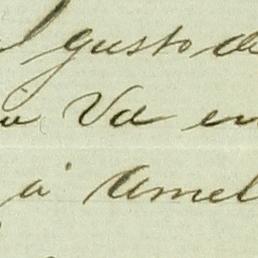 gusto de
á Vd en
á Amel